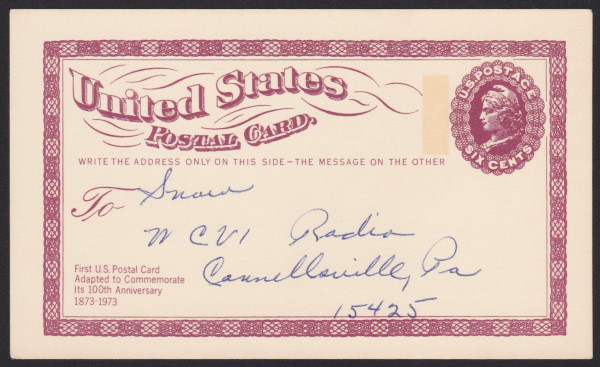 United States
Postal Card.
U.S. POSTAGE
SIX CENTS
WRITE THE ADDRESS ONLY ON THIS SIDE-THE MESSAGE ON THE OTHER
To
Snow
W CVI Radio
Connellsville, Pa
15425
First U.S. Postal Card
Adapted to Commemorate
Its 100th Anniversary
1873-1973